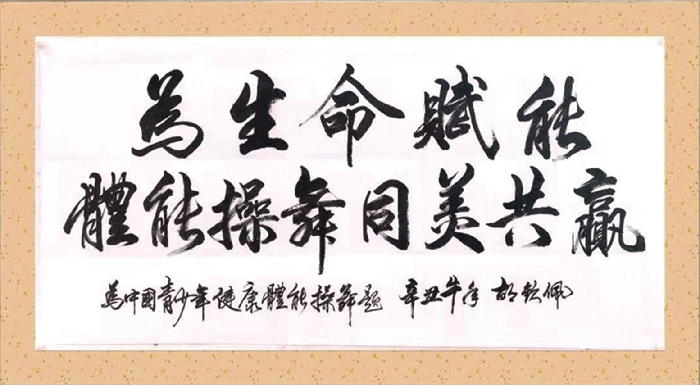 為生命賦能
體能操舞同美共贏
為中國青少年健康體能操舞題 辛丑牛年 胡欽佩